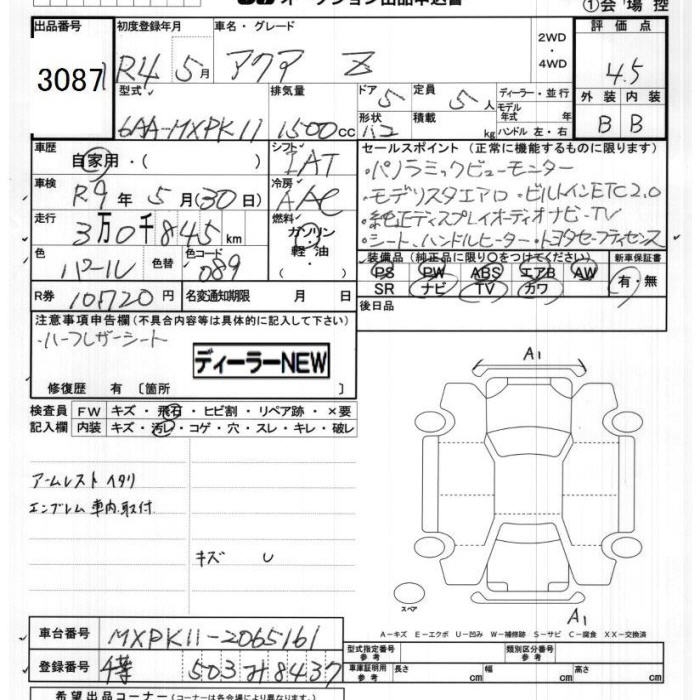 オークション出品申込書 ①会場控
出品番号 3087
初度登録年月 R4年 5月
車名・グレード アクア Z
2WD・4WD
評価点 4.5
型式 6AA-MXPK11
排気量 1500cc
ドア 5 定員 5人
形状 ハコ 積載 kg
ディーラー・並行
モデル年式
ハンドル 左・右
外装 内装
B B
車歴 自家用・( )
シフト IAT
車検 R9年 5月(30日)
冷房 AAC
走行 3万0千845km
燃料 ガソリン・軽油・
色 パール 色替 色コード 089
R券 10720円 名変通知期限 月 日
セールスポイント (正常に機能するものに限ります)
・パノラミックビューモニター
・モデリスタエアロ・ビルトインETC2.0
・純正ディスプレイオーディオナビ・TV
・シート、ハンドルヒーター・トヨタセーフティセンス
装備品(純正品に限り○をつけてください) 新車保証書
PS PW ABS エアB AW 有・無
SR ナビ TV カワ
後日品
注意事項申告欄(不具合内容等は具体的に記入して下さい)
・ハーフレザーシート
ディーラーNEW
修復歴 有〔箇所 〕
検査員記入欄
FW キズ・飛石・ヒビ割・リペア跡・×要
内装 キズ・汚れ・コゲ・穴・スレ・キレ・破レ
アームレスト ヘタリ
エンブレム 車内.取付
キズ U
A1
A1
スペア
A-キズ E-エクボ U-凹み W-補修跡 S-サビ C-腐食 XX-交換済
車台番号 MXPK11-2065161
登録番号 503 み 8437
型式指定番号 参考 類別区分番号 参考
車庫証明用 参考 長さ cm 幅 cm 高さ cm
希望出品コーナー(コーナーは各会場により異なります。)